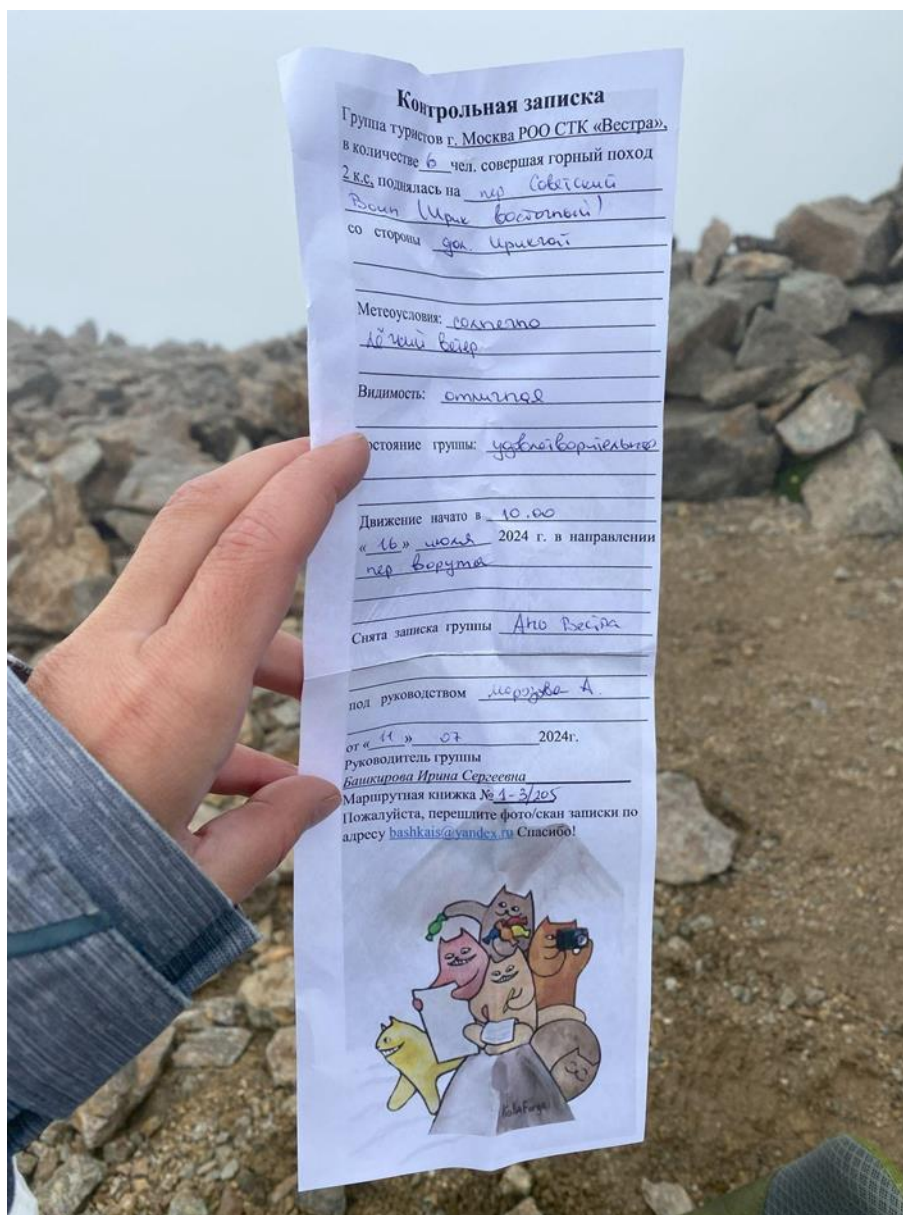 Контрольная записка
Группа туристов г. Москва РОО СТК «Вестра»,
в количестве 6 чел. совершая горный поход
2 к.с, поднялась на пер Советский
Воин (Ирик восточный)
со стороны дол. Ирикчат
Метеоусловия: солнечно
лёгкий ветер
Видимость: отличная
остояние группы: удовлетворительное
Движение начато в 10.00
«16» июля 2024 г. в направлении
пер Ворута
Снята записка группы Ано Вестра
под руководством Морозова А.
от «11» 07 2024г.
Руководитель группы
Башкирова Ирина Сергеевна
Маршрутная книжка № 1-3/205
Пожалуйста, перешлите фото/скан записки по
адресу bashkais@yandex.ru Спасибо!